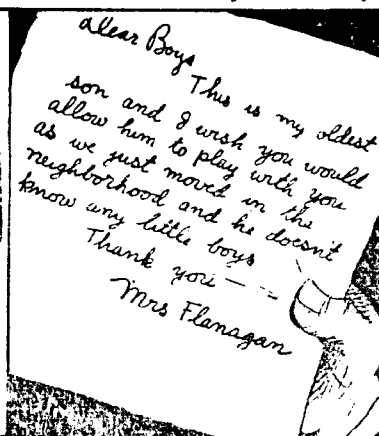 Dear Boys
This is my oldest
son and I wish you would
allow him to play with you
as we just moved in the
neighborhood and he doesn't
know any little boys
Thank you —
Mrs Flanagan